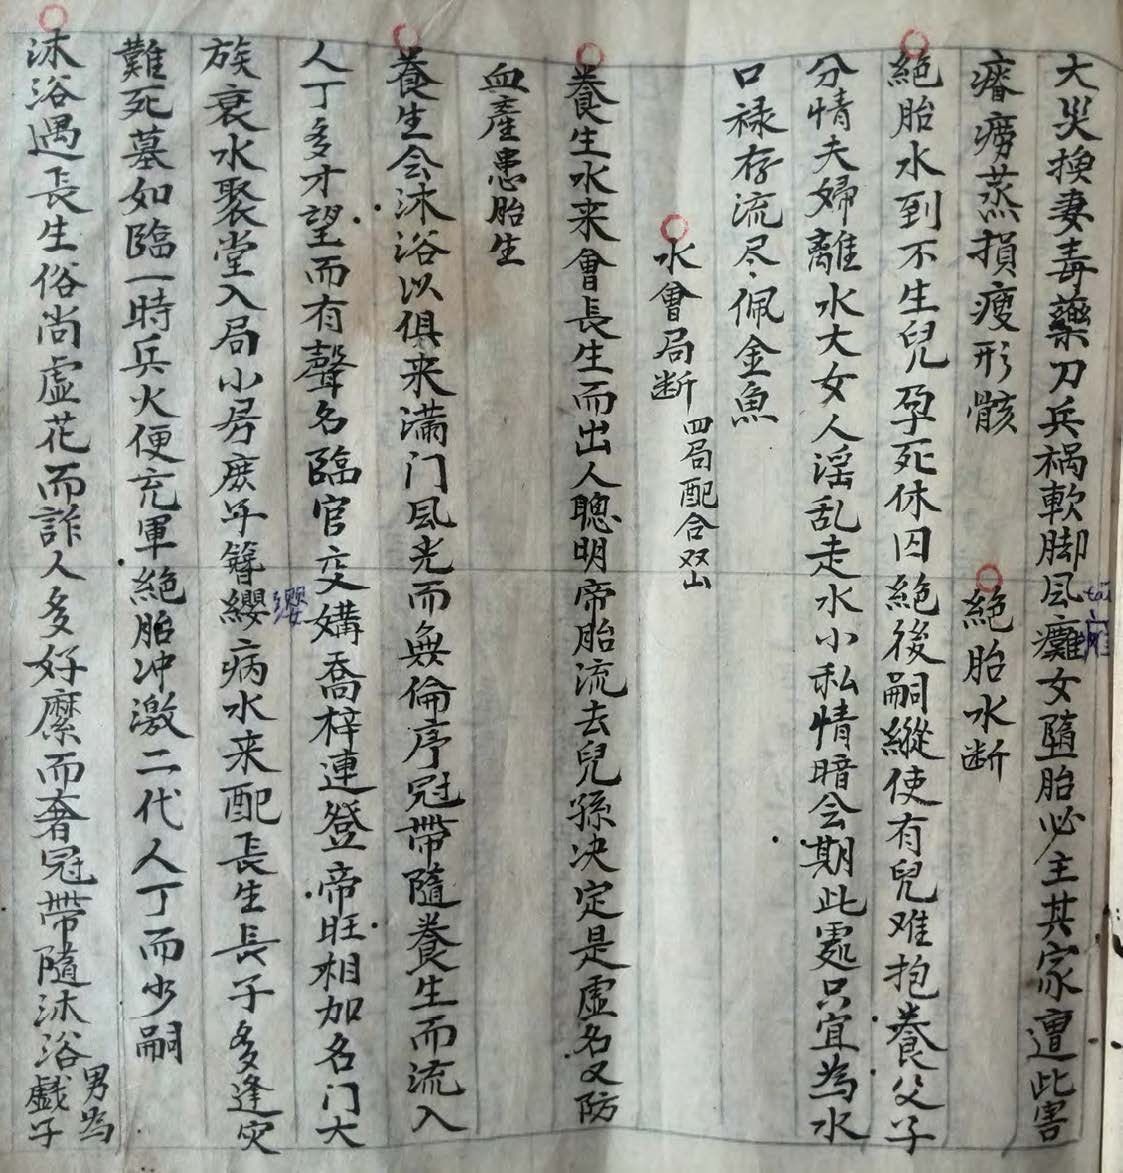 大災換妻毒藥刀兵禍軟脚风癱女墮胎必主其家遭此害
瘠癆蒸損瘦形骸
絕胎水断
絕胎水到不生兒孕死休囚絕後嗣縱使有兒难抱養父子
分情夫婦離水大女人淫乱走水小私情暗会期此處只宜為水
口禄存流尽佩金魚
水會局断 四局配合双山
養生水来會長生而出人聰明帝胎流去兒孫决定是虚名又防
血產患胎生
養生会沐浴以俱来满门风光而無倫序冠帶隨養生而流入
人丁多才望而有聲名臨官交媾喬梓連登帝旺相加名门大
族衰水聚堂入局小房庶年簪纓病水来配長生長子多逢灾
難死墓如臨一時兵火便充軍絕胎冲激二代人丁而少嗣
沐浴遇長生俗尚虛花而詐人多好縻而奢冠帶隨沐浴男為戲子